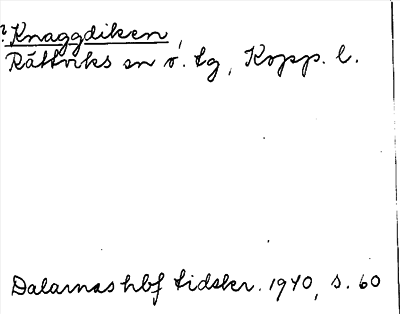 ? Knaggdiken,
Rättviks sn o. tg, Kopp. l.
Dalarnas hbf tidskr. 1940, s. 60